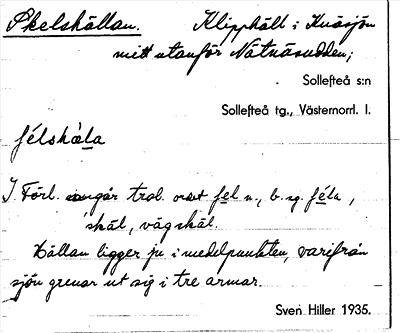 Skelshällan. Klipphäll i Knäsjön
mitt utanför Nätnäsudden;
Sollefteå s:n
Sollefteå tg., Västernorrl. l.
I Förl. ingår trol. ordet fel n., b. sg. féla,
skäl, vägskäl.
Hällan ligger ju i medelpunkten, varifrån
sjön grenar ut sig i tre armar.
Sven Hiller 1935.